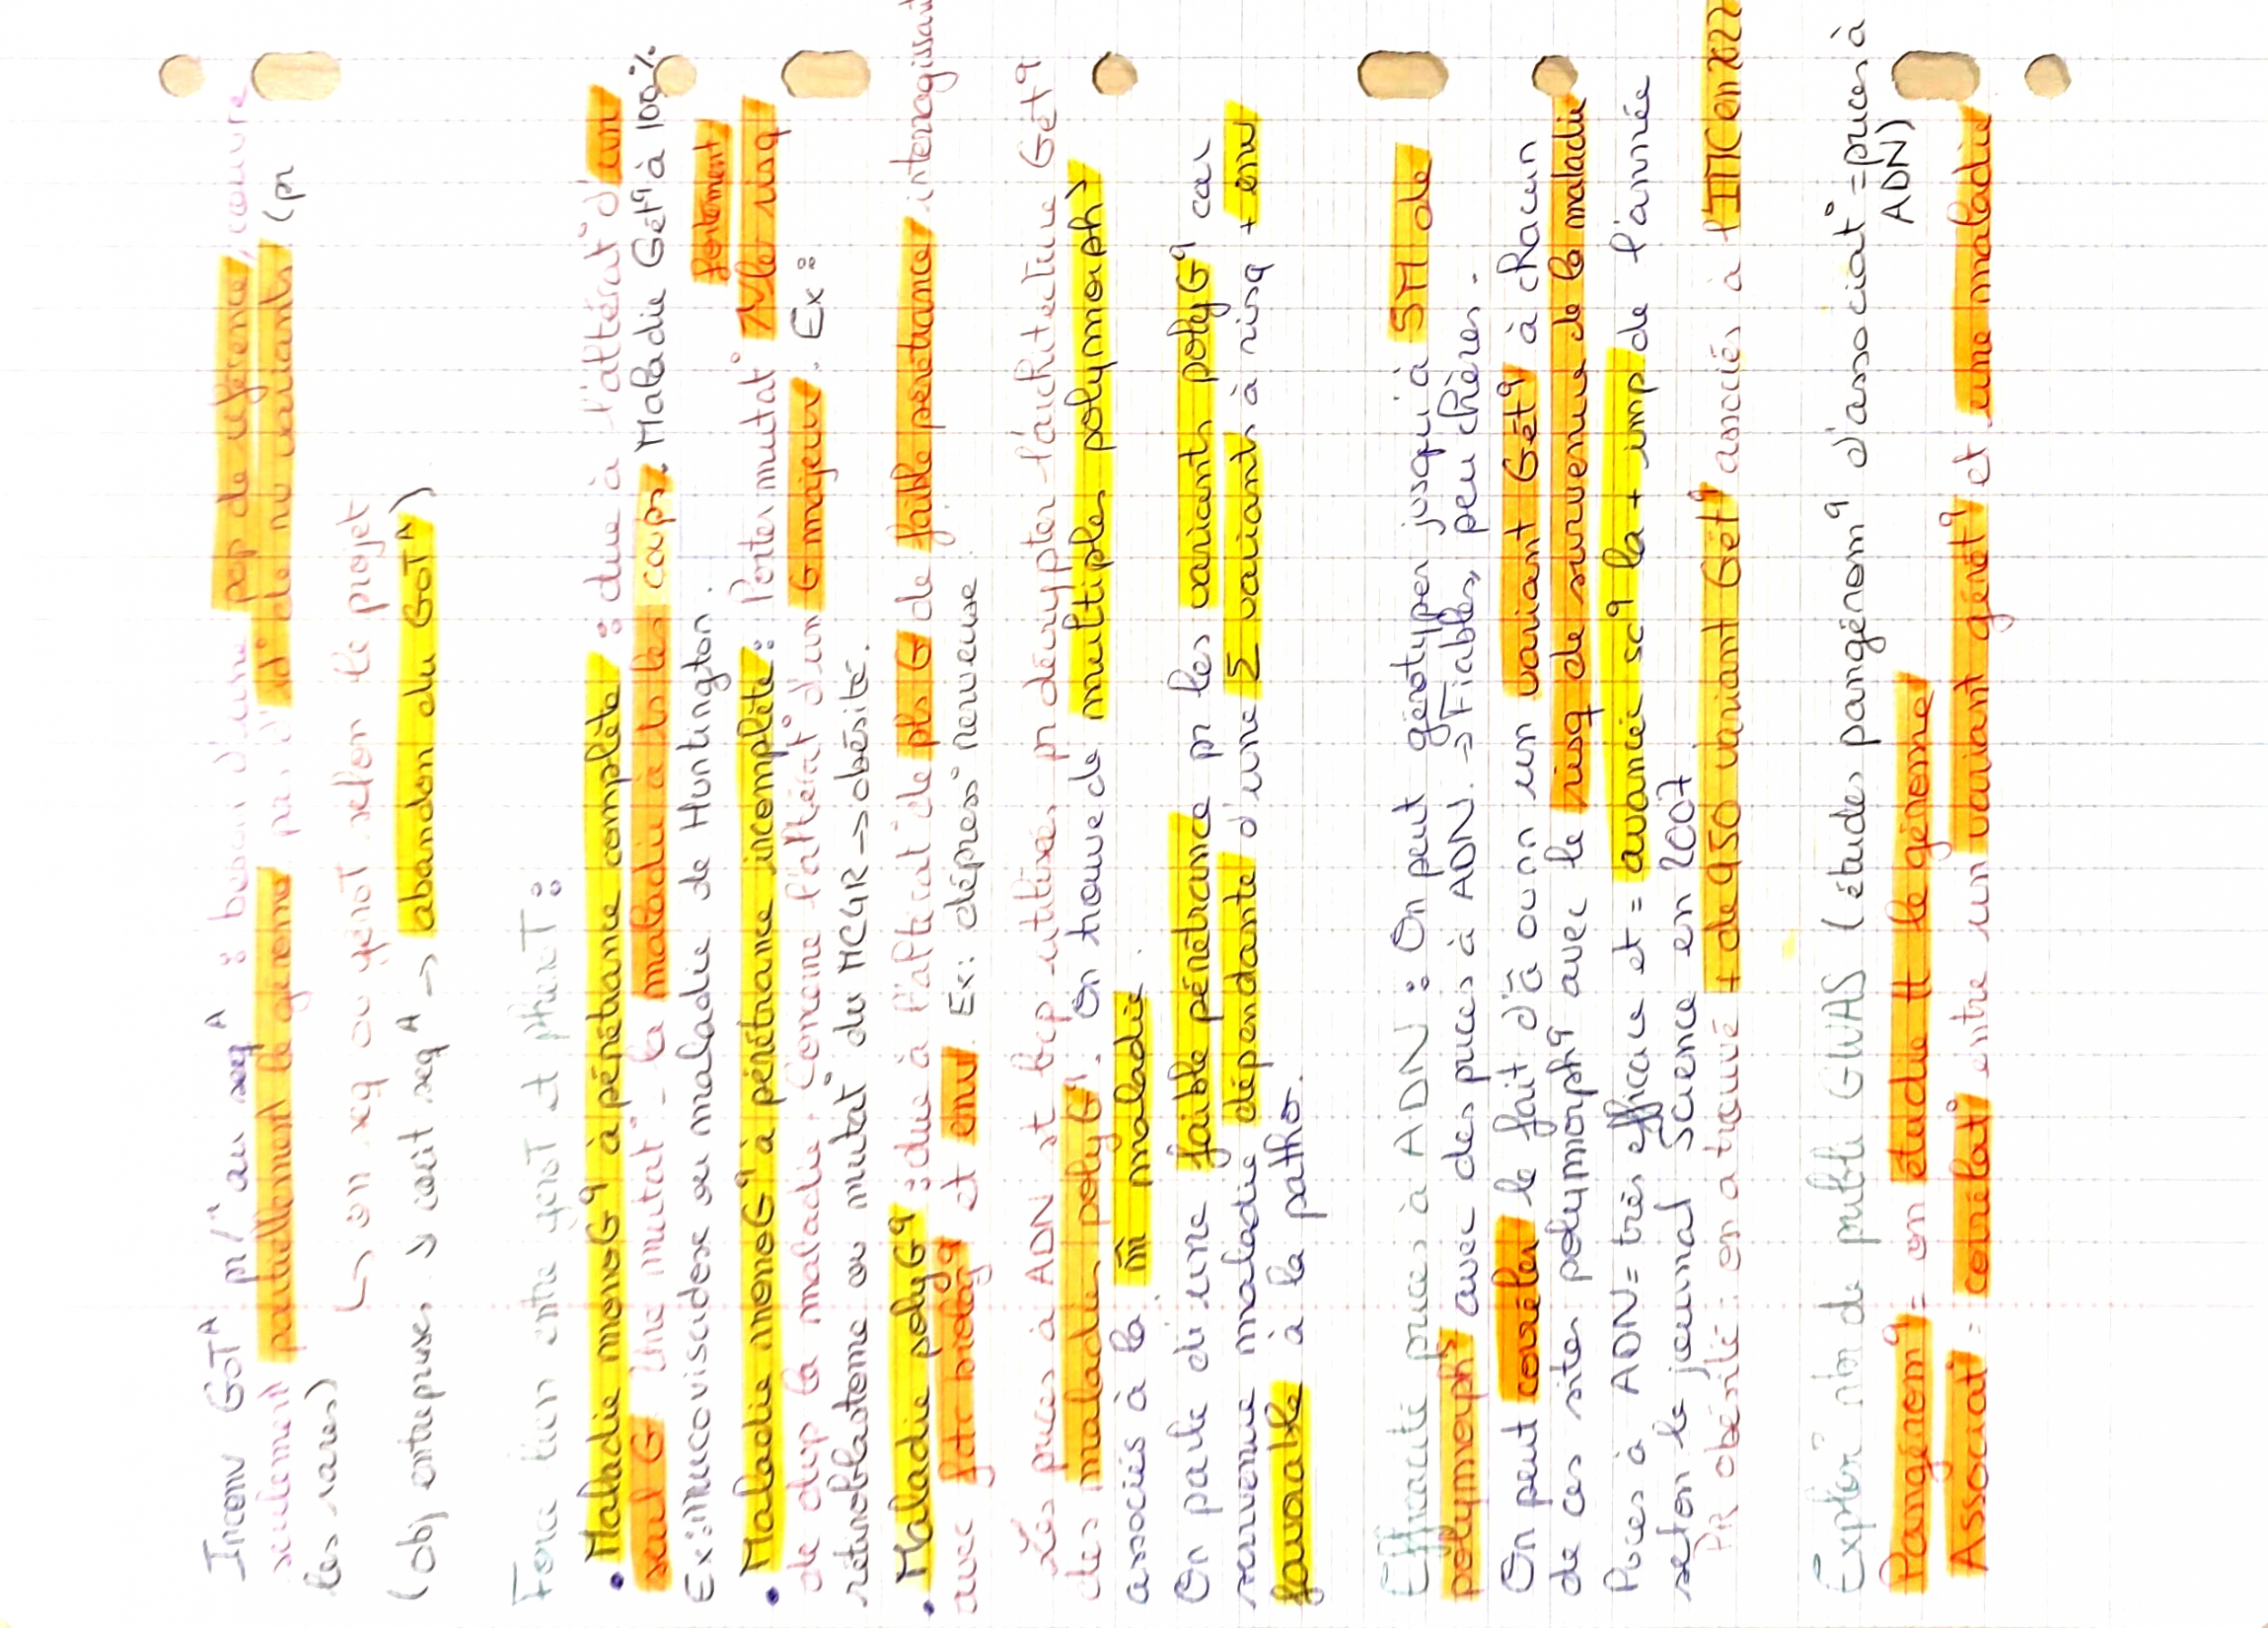 Inconv GoTᴬ pr/° au seqᴬ : besoin d'une pop de référence, couvre
seulement partiellement le génome, pas d'idº de nv variants (pr
les rares)
↳ on seq ou génoT selon le projet
(obj entreprises ↘ coût seqᴬ → abandon du GoTᴬ)
Force lien entre génoT et phénoT :
• Maladie monoG⁹ à pénétrance complète : due à l'altérat° d'un
seul G. Une mutat° = la maladie à ts les coups. Maladie Gét⁹ à 100%
Ex : mucoviscidose ou maladie de Huntington.
• Maladie monoG⁹ à pénétrance incomplète : Porter mutat° ↗ le risq fortement
de dvp la maladie. Concerne l'altérat° d'un G majeur. Ex :
rétinoblastome ou mutat° du MC4R → obésité.
• Maladie polyG⁹ : due à l'altérat° de pls G de faible pénétrance, interagissant
avec fact biolog⁹ et env. Ex : dépress° nerveuse
Les puces à ADN st bcp utilisées pr décrypter l'architecture Gét⁹
des maladies polyG⁹. On trouve de multiples polymorph⁹
associés à la m̄ maladie.
On parle d'une faible pénétrance pr les variants polyG⁹ car
survenue maladie dépendante d'une Σ variants à risq + env
favorable à la patho.
Efficacité puces à ADN : On peut génotyper jusqu'à 5M de
polymorph⁹ avec des puces à ADN. → Fiables, peu chères.
On peut corréler le fait d'avoir un variant Gét⁹ à chacun
de ces sites polymorph⁹ avec le risq de survenue de la maladie
Puces à ADN = très efficace et = avancée sc⁹ la + imp de l'année
selon le journal Science en 2007.
PR obésité : on a trouvé + de 950 variant Gét⁹ associés à l'IMC en 2022
Explor° nbr de publi GWAS (études pangénom⁹ d'associat° = puces à
ADN)
Pangénom⁹ = on étudie tt le génome
Associat° = corrélat° entre un variant génét⁹ et une maladie